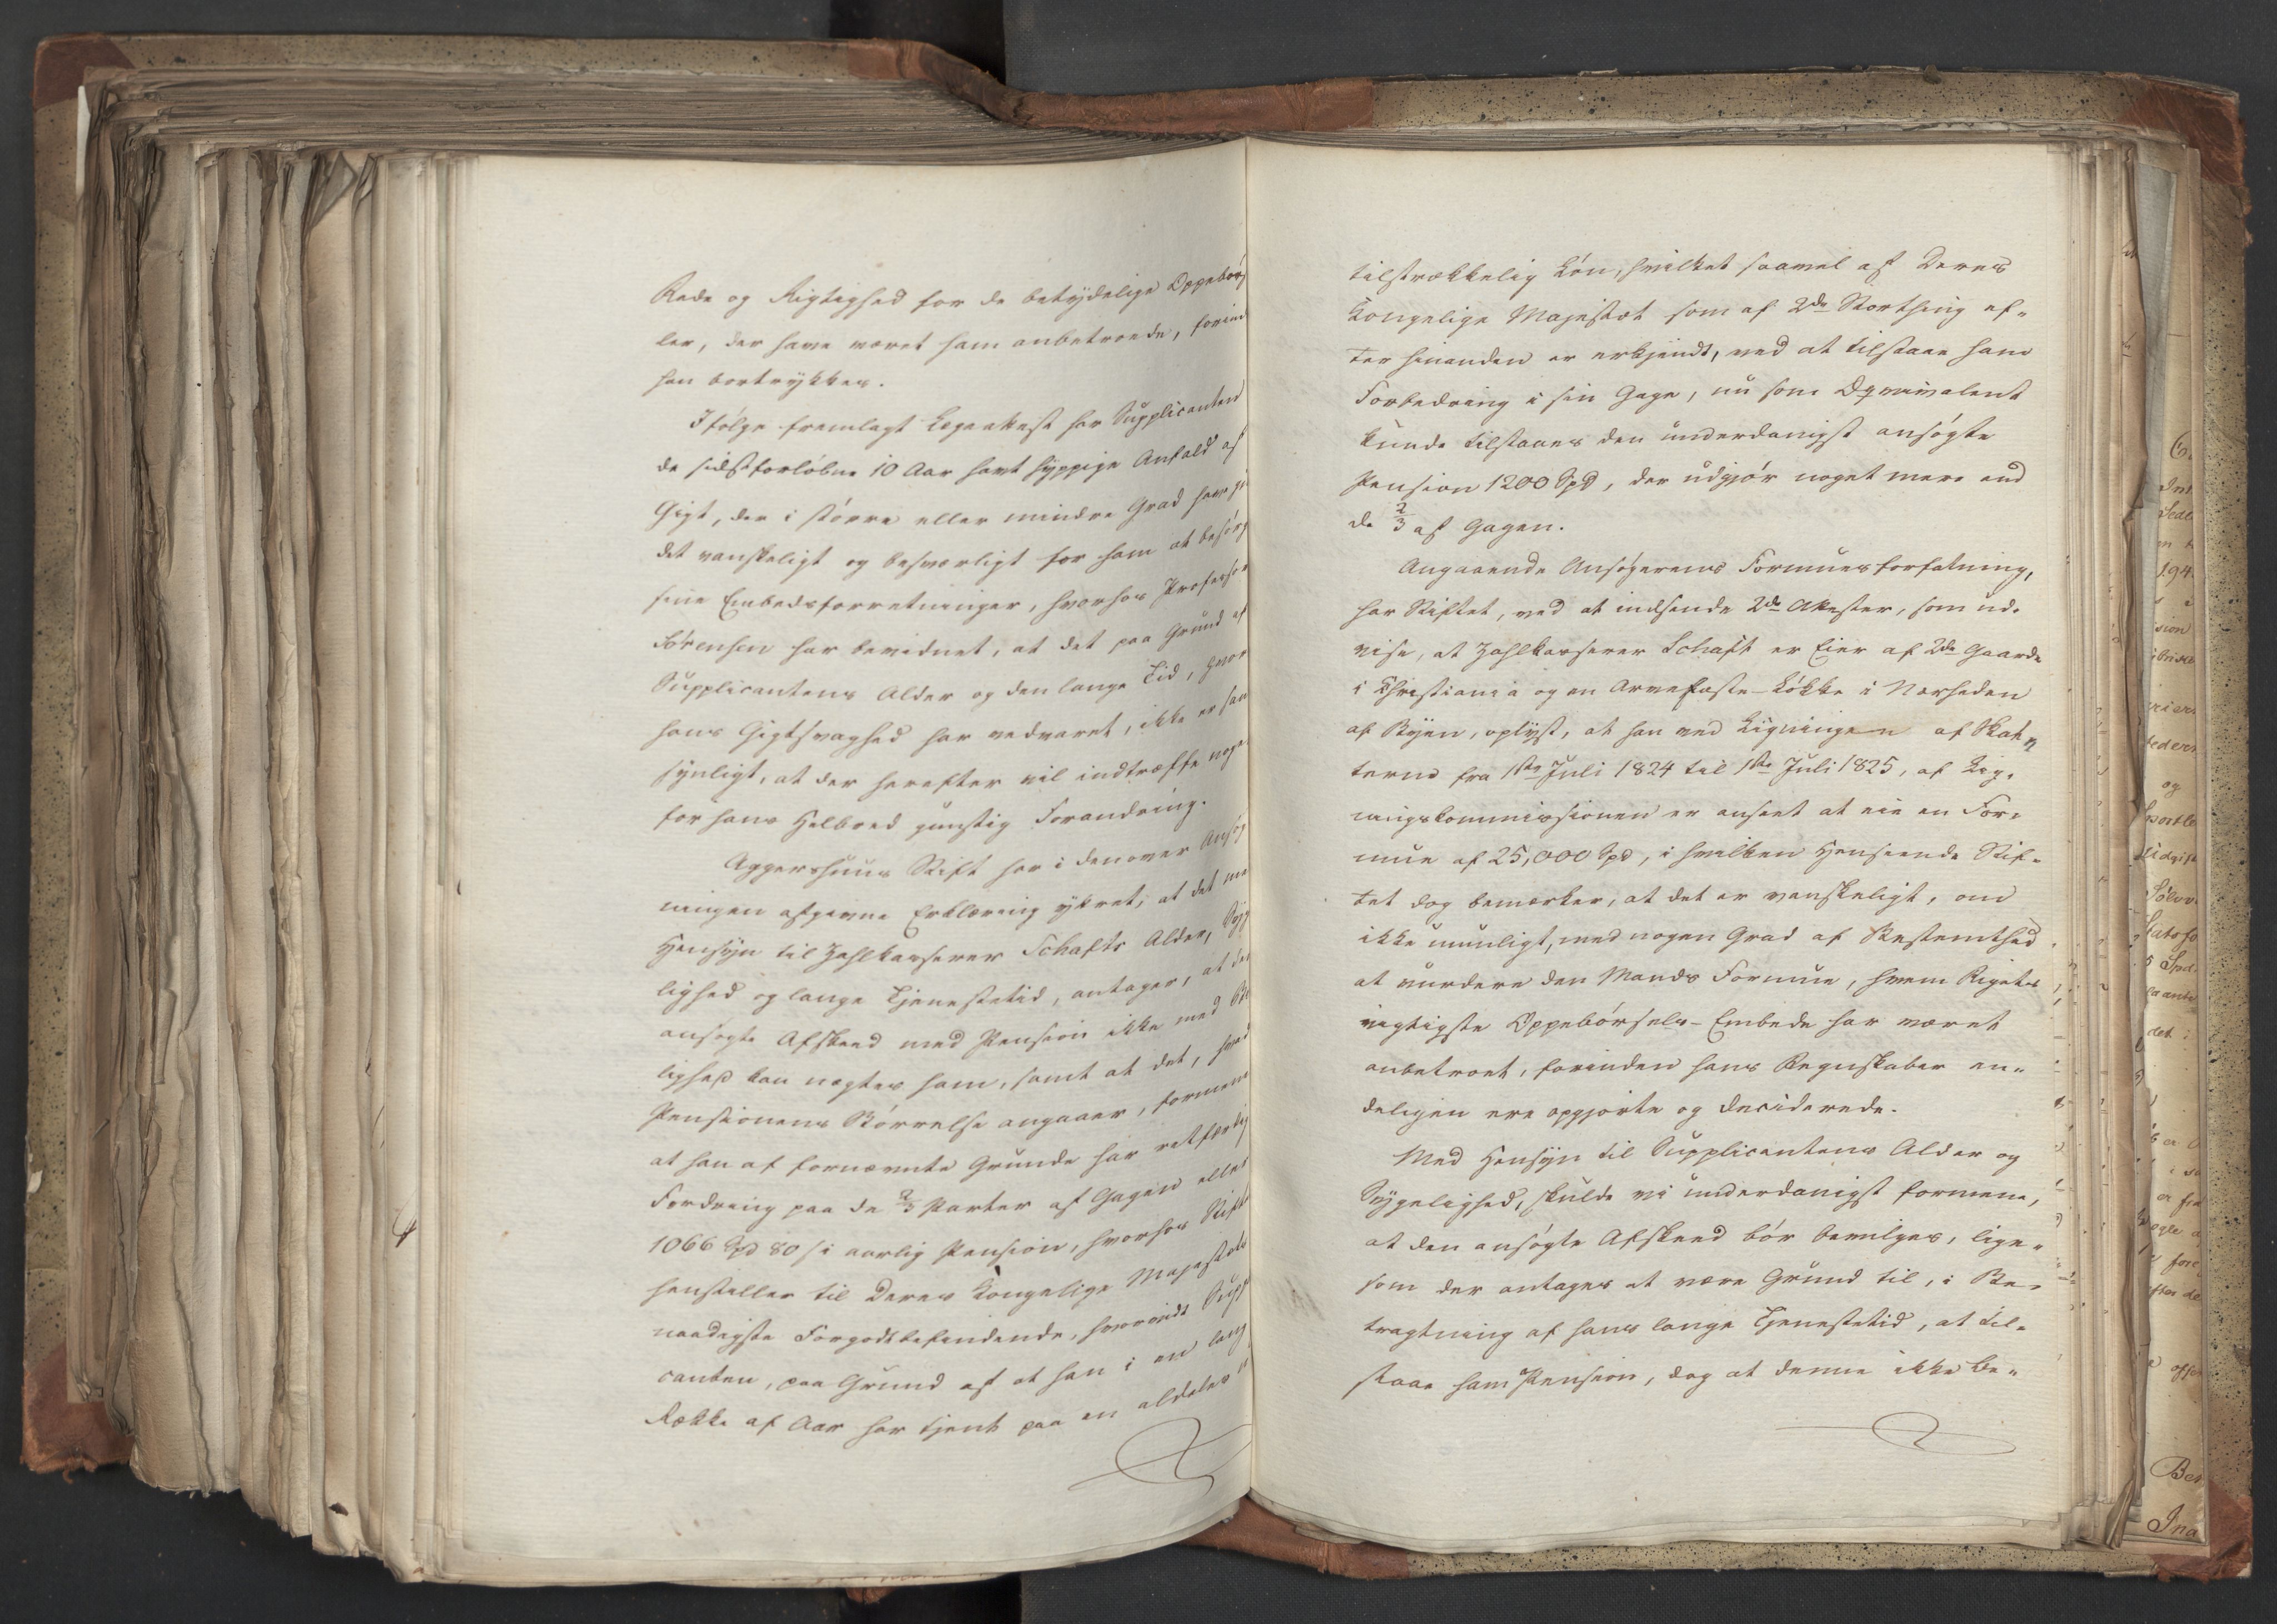 Rede og Rigtighed for de betydelige Oppebørs
ler, der have været ham anbetroede, forind
han bortrykkes.
Ifølge fremlagt Lægeattest har Supplicanten
de sidstforløbne 10 Aar havt hyppige Anfald af
Gigt, der i større eller mindre Grad have gi
det vanskeligt og besværligt for ham at besørg
sine Embedsforretninger, hvorhos Professor
Sørensen har bevidnet, at det paa Grund af
Supplicantens Alder og den lange Tid, hvor
hans Gigtsvaghed har vedvaret, ikke er san
synligt, at der herefter vil indtræffe noge
for hans Helbred gunstig Forandring.
Aggershuus Stift har i den over Ansøg
ningen afgivne Erklæring yttret, at det me
Hensyn til Zahlkasserer Schafts Alder, Syg
lighed og lange Tjenestetid, antager, at den
ansøgte Afskeed med Pension ikke med Bil
lighed kan nægtes ham, samt at det, hvad
Pensionens Størrelse angaaer, formene
at han af fornævnte Grunde har retfærdig
Fordring paa de 2/3 Parter af Gagen eller
1066 Spd 80 s i aarlig Pension, hvorhos Stift
henstiller til Deres Kongelige Majestæts
naadigste Forgodtbefindende, hvorvidt Suppl
canten, paa Grund af at han i en lang
Række af Aar har tjent paa en aldeles u
tilstrækkelig Løn, hvilket saavel af Deres
Kongelige Majestæt som af 2de Storthing ef-
ter hinanden er erkjendt, ved at tilstaae ham
Forbedring i sin Gage, nu som Æqvivalent
kunde tilstaaes den underdanigst ansøgte
Pension 1200 Spd, der udgjør noget mere end
de 2/3 af Gagen.
Angaaende Ansøgerens Formuesforfatning,
har Stiftet, ved at indsende 2de Attester, som ud-
vise, at Zahlkasserer Schaft er Eier af 2de Gaarde
i Christiania og en Arvefæste-Løkke i Nærheden
af Byen, oplyst, at han ved Ligningen af Skat-
terne fra 1ste Juli 1824 til 1ste Juli 1825, af Lig-
ningskommissionen er anseet at eie en For-
mue af 25,000 Spd, i hvilken Henseende Stif-
tet dog bemærker, at det er vanskeligt, om
ikke umuligt, med nogen Grad af Bestemthed
at vurdere den Mands Formue, hvem Rigets
vigtigste Oppebørsels-Embede har været
anbetroet, forinden hans Regnskaber en-
deligen ere opgjorte og deciderede.
Med Hensyn til Supplicantens Alder og
Sygelighed, skulde vi underdanigst formene,
at den ansøgte Afskeed bør bevilges, lige-
som der antages at være Grund til, i Be-
tragtning af hans lange Tjenestetid, at til-
staae ham Pension, dog at denne ikke be-